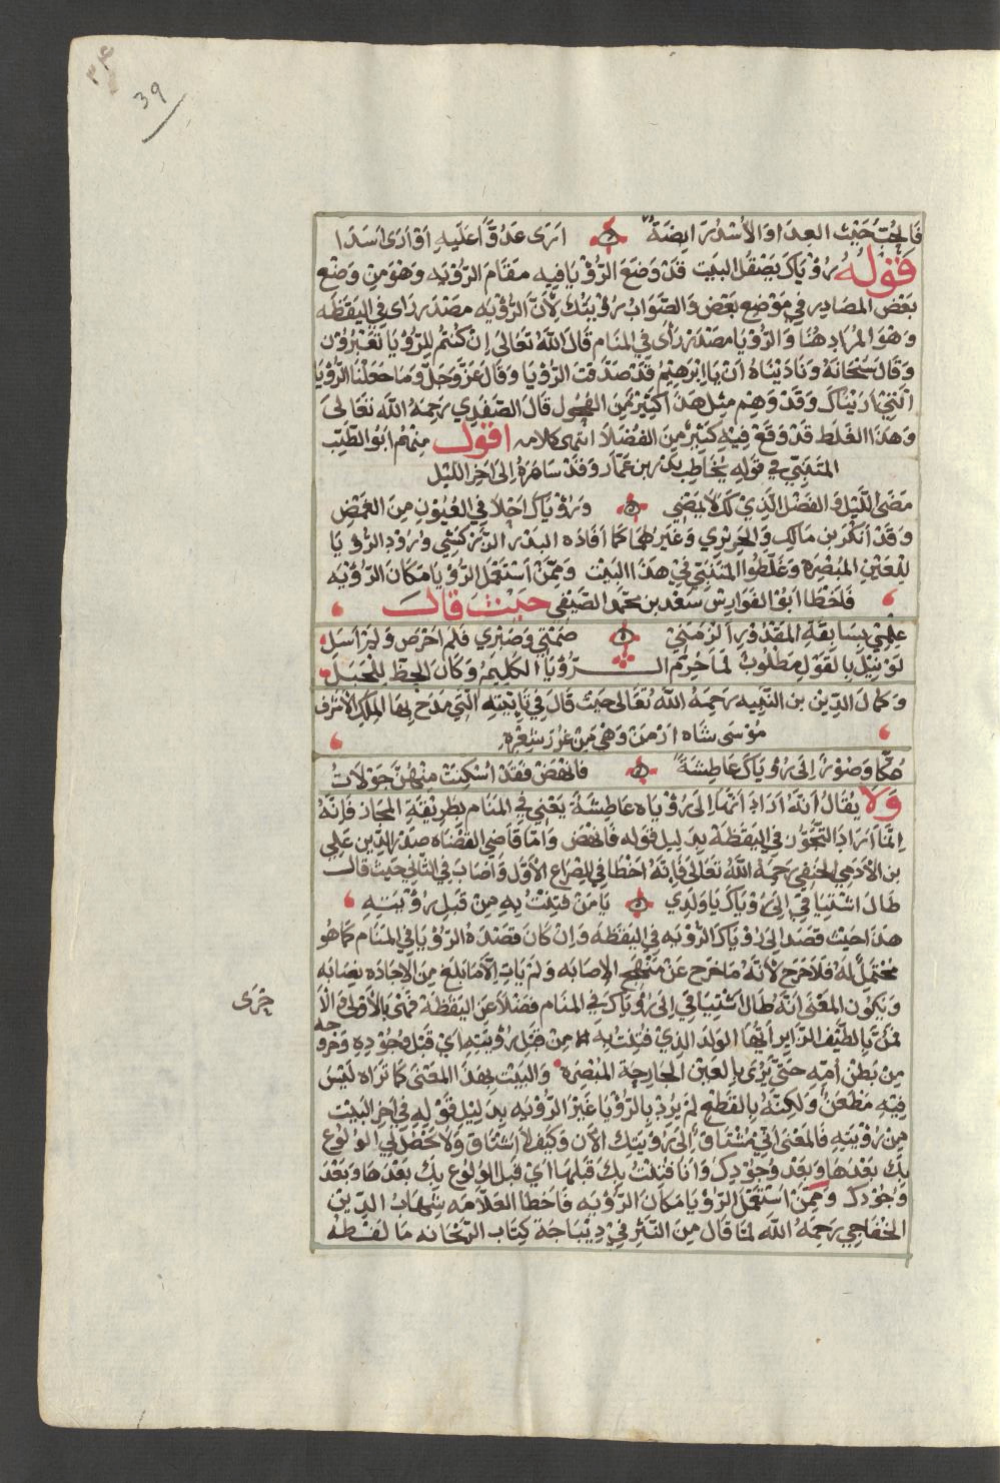 ٣٤
39
فالحب حيث العدا والأسد رابضة ارى عدوا عليه او ارى اسدا
قوله رؤياك يصقل البيت قد وضع الرؤيا فيه مقام الرؤيه وهو من وضع
بعض المصادر في موضع بعض والصواب رؤيتك لأن الرؤيه مصدر رأى في اليقظه
وهو المراد هنا والرؤيا مصدر رأى في المنام قال الله تعالى ان كنتم للرؤيا تعبرون
وقال سبحانه وناديناه ان يا ابرهيم قد صدقت الرؤيا وقال عز وجل وما جعلنا الرؤيا
التي أريناك وقد وهم مثل هذا كثير من الفحول قال الصفدي رحمه الله تعالى
وهذا الغلط قد وقع فيه كثير من الفضلا انتهى كلامه اقول منهم ابو الطيب
المتنبي في قوله يخاطب بدر بن عمار وقد سامره الى اخر الليل
مضى الليل والفضل الذي لك لا يمضي ورؤياك احلا في العيون من الغمض
وقد أنكر بن مالك والحريري وغيرهما كما أفاده البدر الزركشي ورود الرؤيا
للعين المبصره وغلطوا المتنبي في هذا البيت وممن استعمل الرؤيا مكان الرؤيه
فاخطا ابو الفوارس سعد بن محمد الصيفي حيث قال
علمي بسابقة المقدور الزمني صمتي وصبري فلم احرص ولم أسل
لو نيل بالقول مطلوب لما حرم الــرؤيا الكليم وكان الحظ للجبل
وكمال الدين بن النبيه رحمه الله تعالى حيث قال في تائيته التي مدح بها الملك الاشرف
موسى شاه ارمن وهي من غرر شعره
صمًّا وصورًا الى رؤياك عاطشة فانهض فقد أسكت منهن جولات
ولا يقال أنه أراد أنها الى رؤياه عاطشة يعني في المنام بطريقة المجاز فإنه
إنما أراد التجوز في اليقظة بدليل قوله فانهض واما قاضي القضاه صدر الدين علي
بن الأدمي الحنفي رحمه الله تعالى فإنه اخطا في المصراع الأول وأصاب في الثاني حيث قال
طال اشتياقي الى رؤياك يا ولدي يا من فتنت به من قبل رؤيته
هذا حيث قصد الى رؤياك الرؤيه في اليقظه وان كان قصده الرؤيا في المنام كما هو
محتمل له فلا حرج لأنه ما خرج عن منهج الإصابه ولم يات الا ما بلغ من الاجاده نصابه
ويكون المعنى انه طال اشتياقي الى رؤياك في المنام فضلا عن اليقظة فمنى بالأولى والا
خرى
فمن بالطيف الزاير أيها الولد الذي فتنت به من قبل رؤيته اي قبل وجوده وخروجه
من بطن أمه حتى يرى بالعين الجارحة المبصره والبيت بهذا المعنى كما تراه ليس
فيه مطعن ولكنه بالقطع لم يرد بالرؤيا غير الرؤيه بدليل قوله في اخر البيت
من رؤيته فالمعنى اني مشتاق الى رؤيتك الآن وكيف لا اشتاق ولا تحصل لي الولوع
بك بعدها وبعد وجودك وانا فتنت بك قبلها اي قبل الولوع بك بعدها وبعد
وجودك وممن استعمل الرؤيا مكان الرؤيه فاخطا العلامه شهاب الدين
الخفاجي رحمه الله لما قال من النثر في ديباجة كتاب الريحانه ما لفظه